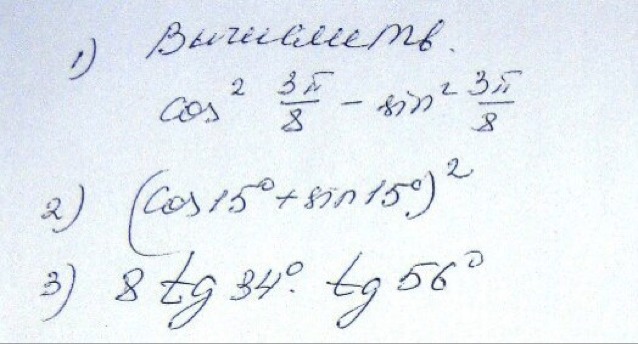 1) Вычислить.
cos² 3π/8 − sin² 3π/8
2) (cos15°+sin15°)²
3) 8 tg 34°· tg 56°